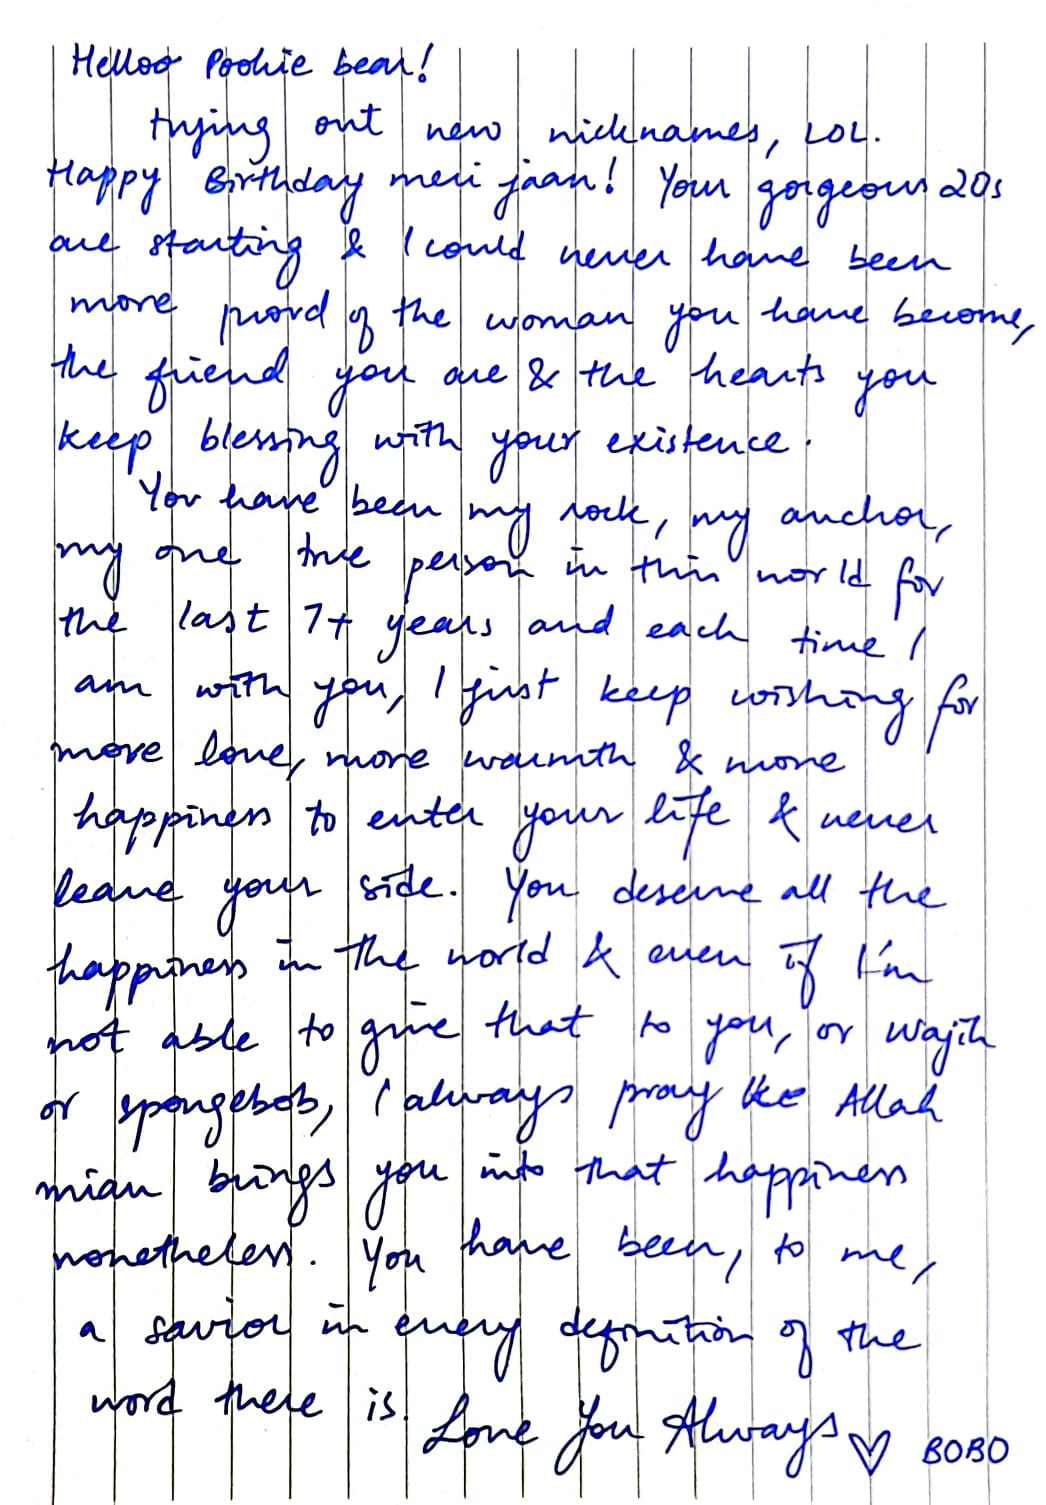 Helloo Pookie bear!
trying out new nicknames, LOL.
Happy Birthday meri jaan! Your gorgeous 20s
are starting & I could never have been
more proud of the woman you have become,
the friend you are & the hearts you
keep blessing with your existence.
You have been my rock, my anchor,
my one true person in this world for
the last 7+ years and each time I
am with you, I just keep wishing for
more love, more warmth & more
happiness to enter your life & never
leave your side. You deserve all the
happiness in the world & even if I'm
not able to give that to you, or Wajih
or spongebob, I always pray ke Allah
mian brings you into that happiness
nonetheless. You have been, to me,
a savior in every definition of the
word there is. Love You Always ♡ BOBO